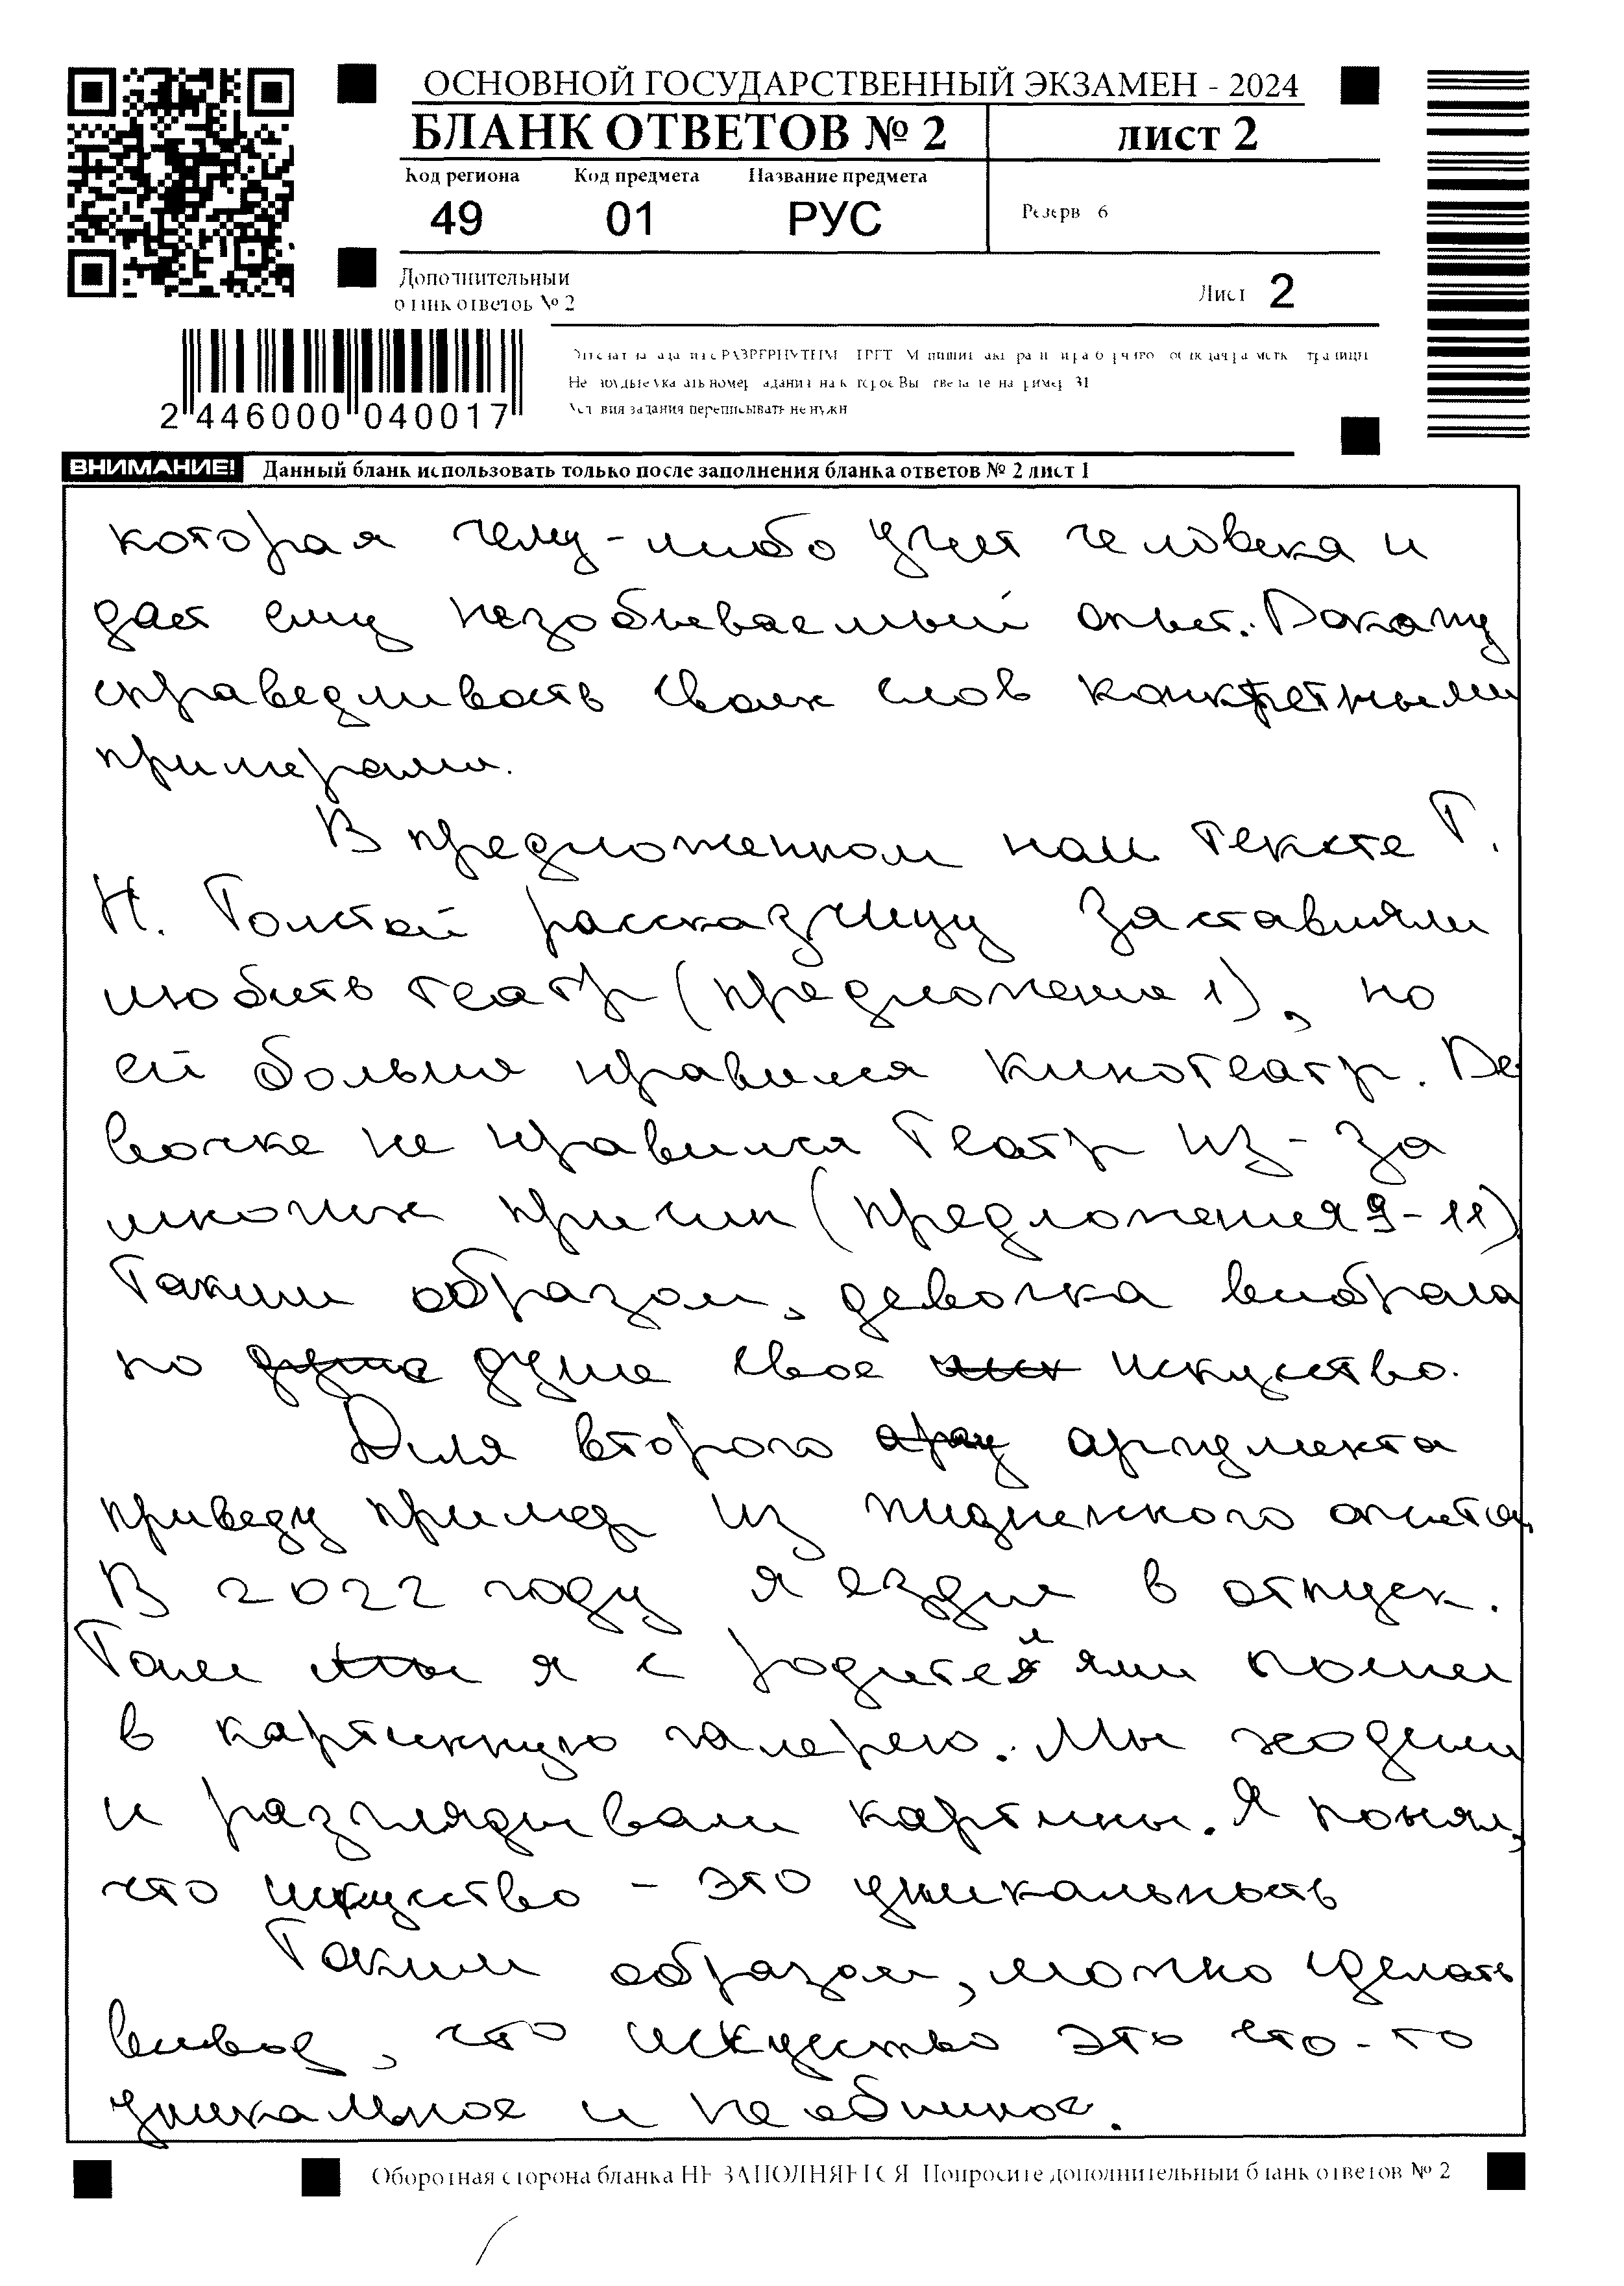 ОСНОВНОЙ ГОСУДАРСТВЕННЫЙ ЭКЗАМЕН - 2024
БЛАНК ОТВЕТОВ № 2
лист 2
Код региона Код предмета Название предмета
49 01 РУС
Резерв 6
Дополнительный
бланк ответов № 2
Лист 2
2 446000 040017
Условия задания переписывать не нужн
ВНИМАНИЕ! Данный бланк использовать только после заполнения бланка ответов № 2 лист 1
которая чему-либо учит человека и
даст ему незобываемый опыт. Докажу
справедливость своих слов конкретными
примерами.
В предложенном нам тексте Т.
Н. Толстой рассказчицу заставляли
любить театр (предложение 1), но
ей больше нравился кинотеатр. Де
вочке не нравился театр из-за
многих причин (предложения 9-11)
Таким образом, девочка выбрала
по душе свое искуство.
Для второго аргумента
приведу пример из жизненного опыта.
В 2022 году я ездил в отпуск.
Там я с родителями пошел
в картинную галерею. Мы ходили
и разглядывали картины. Я понял,
что искуство - это уникальность
Таким образом, можно сделать
вывод, что искуство это что-то
уникальное и необычное.
Оборотная сторона бланка НЕ ЗАПОЛНЯЕТСЯ Попросите дополнительный бланк ответов № 2